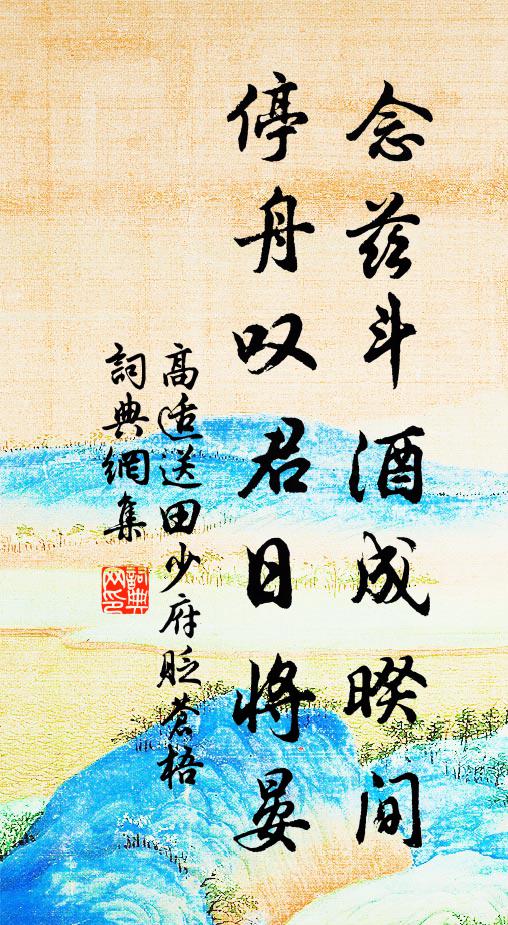 念茲斗酒成暌间
停舟叹君日将晏
高适送田少府貶蒼梧
詞典網集
詞典
网印